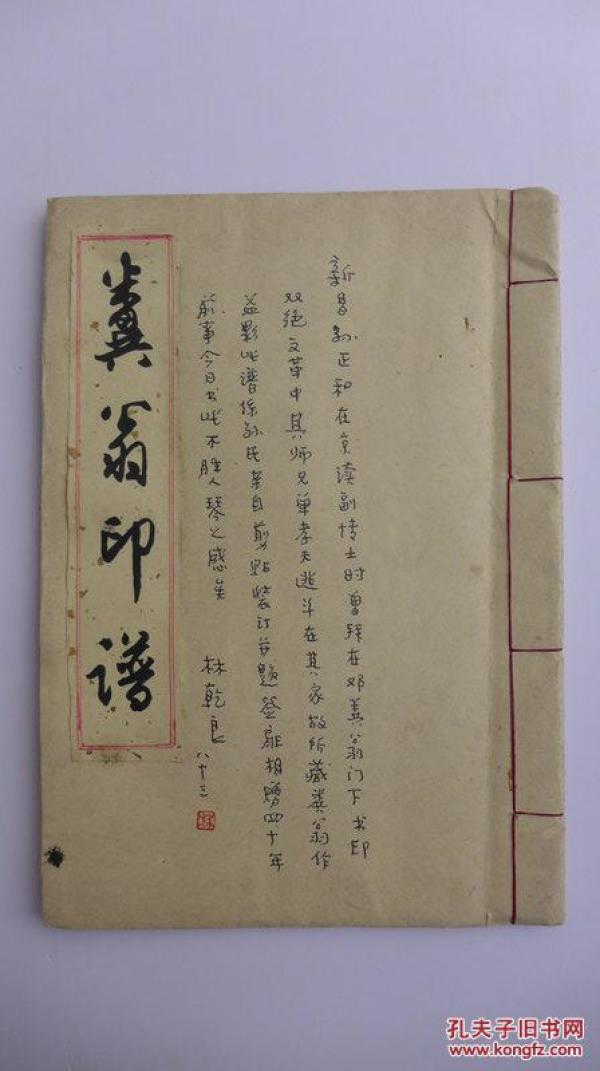 粪翁印谱
新昌孙正和在京读副博士时曾拜在邓粪翁门下书印
双绝文革中其师兄单孝天逃斗在其家故所藏粪翁作
益影此谱系孙氏亲自剪贴装订并题签庭相赠四十年
前事今日书此不胜人琴之感矣
林乾良八十三
孔夫子旧书网
www.kongfz.com